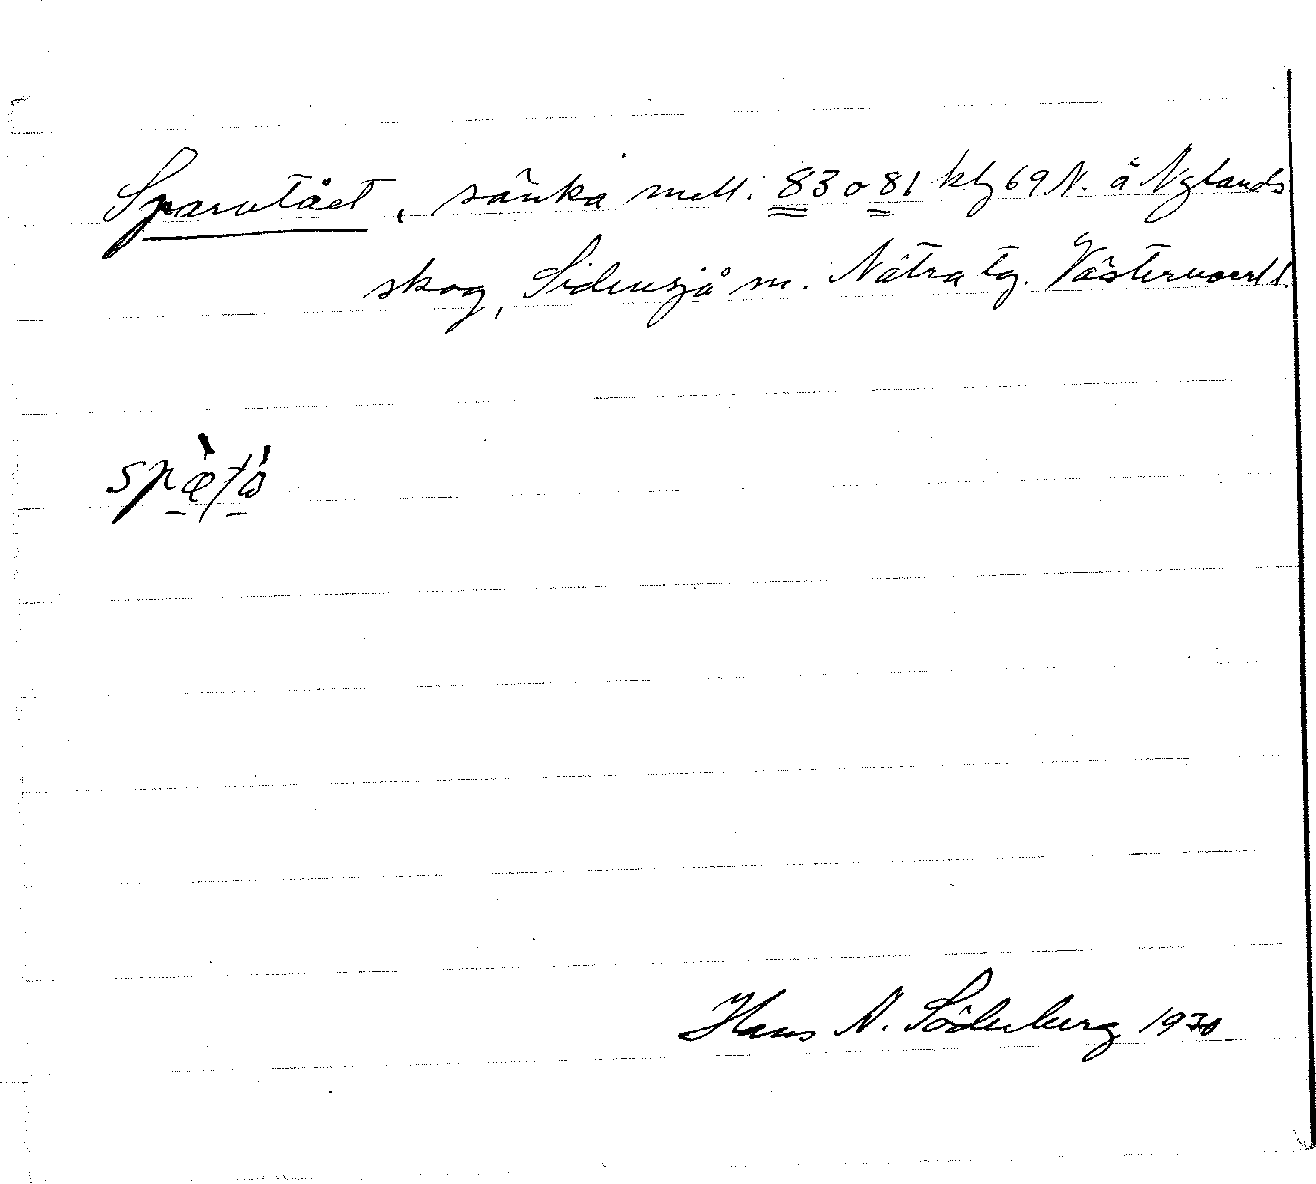 Sparvtået, sänka mell. 83 o 81 klj 69 N. å Nylands
skog, Sidensjö sn. Nätra tg. Västernorrl.
spæ̀tá̀
Hans N. Söderberg 1930